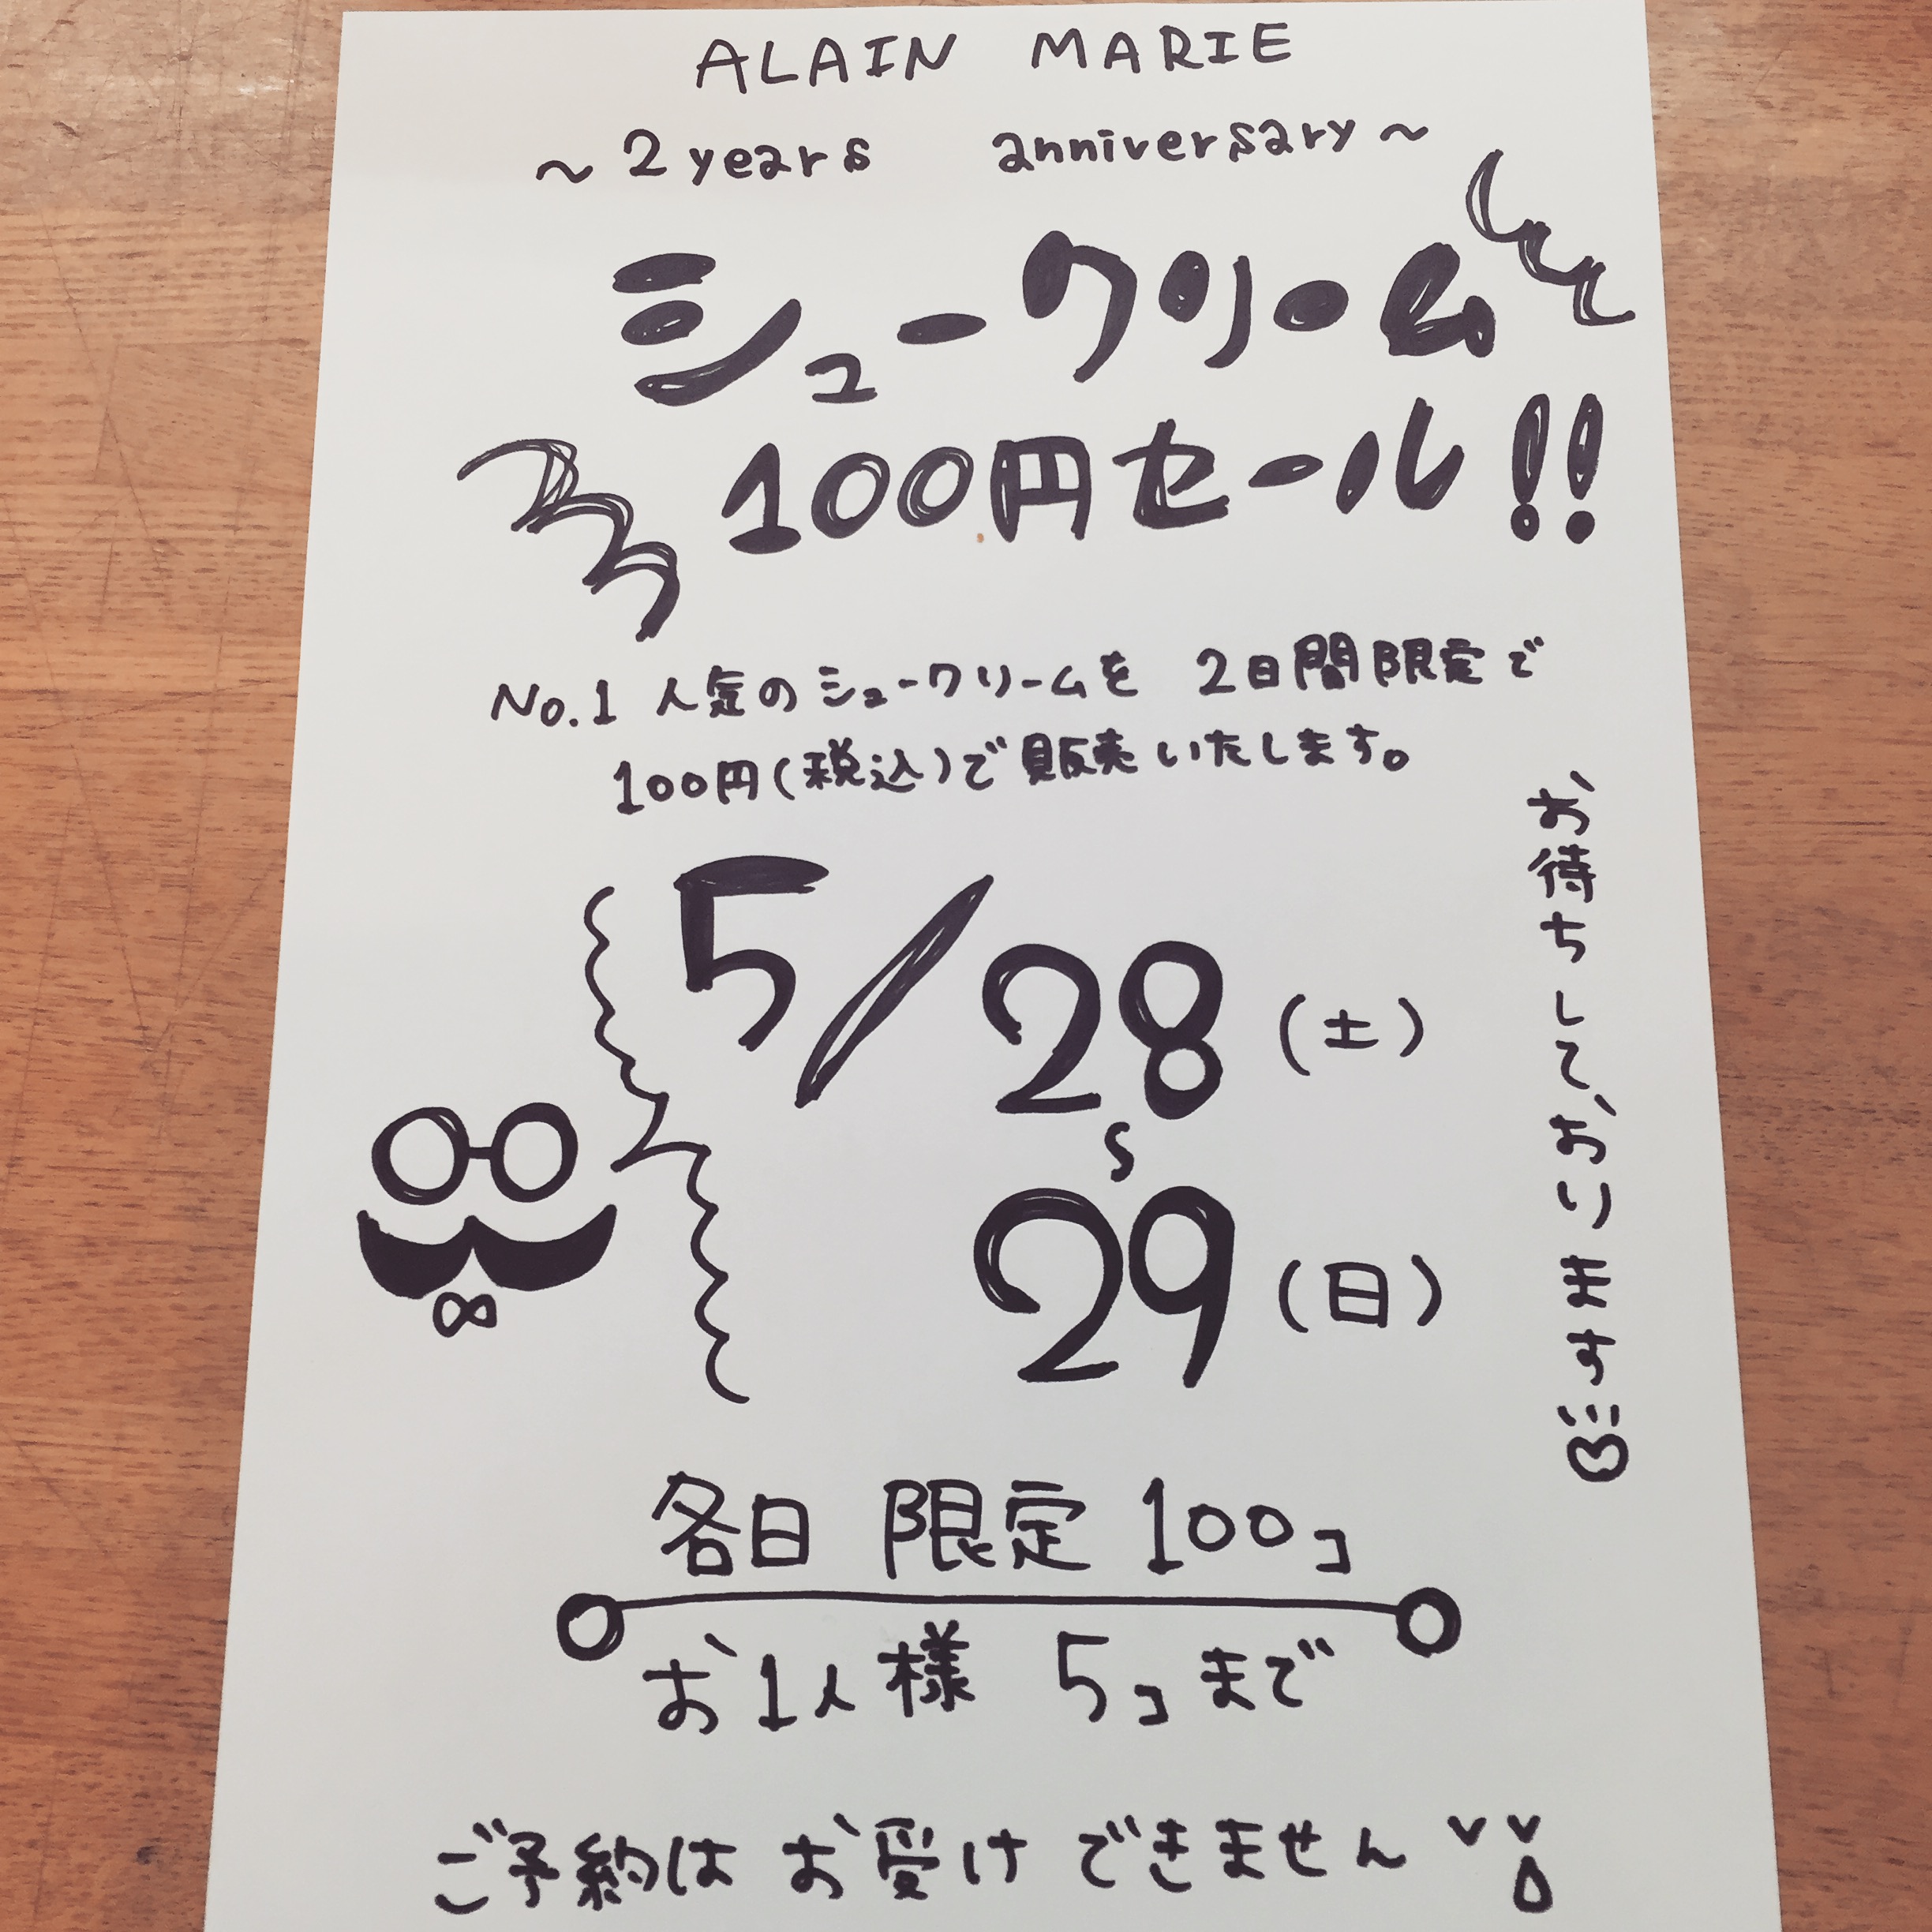 ALAIN MARIE
~2 years anniversary~
シュークリーム
100円セール!!
No.1 人気のシュークリームを 2日間限定で
100円(税込)で販売いたします。
5/28(土)
〜
29(日)
お待ちしております
各日 限定 100コ
お1人様 5コまで
ご予約は お受け できません